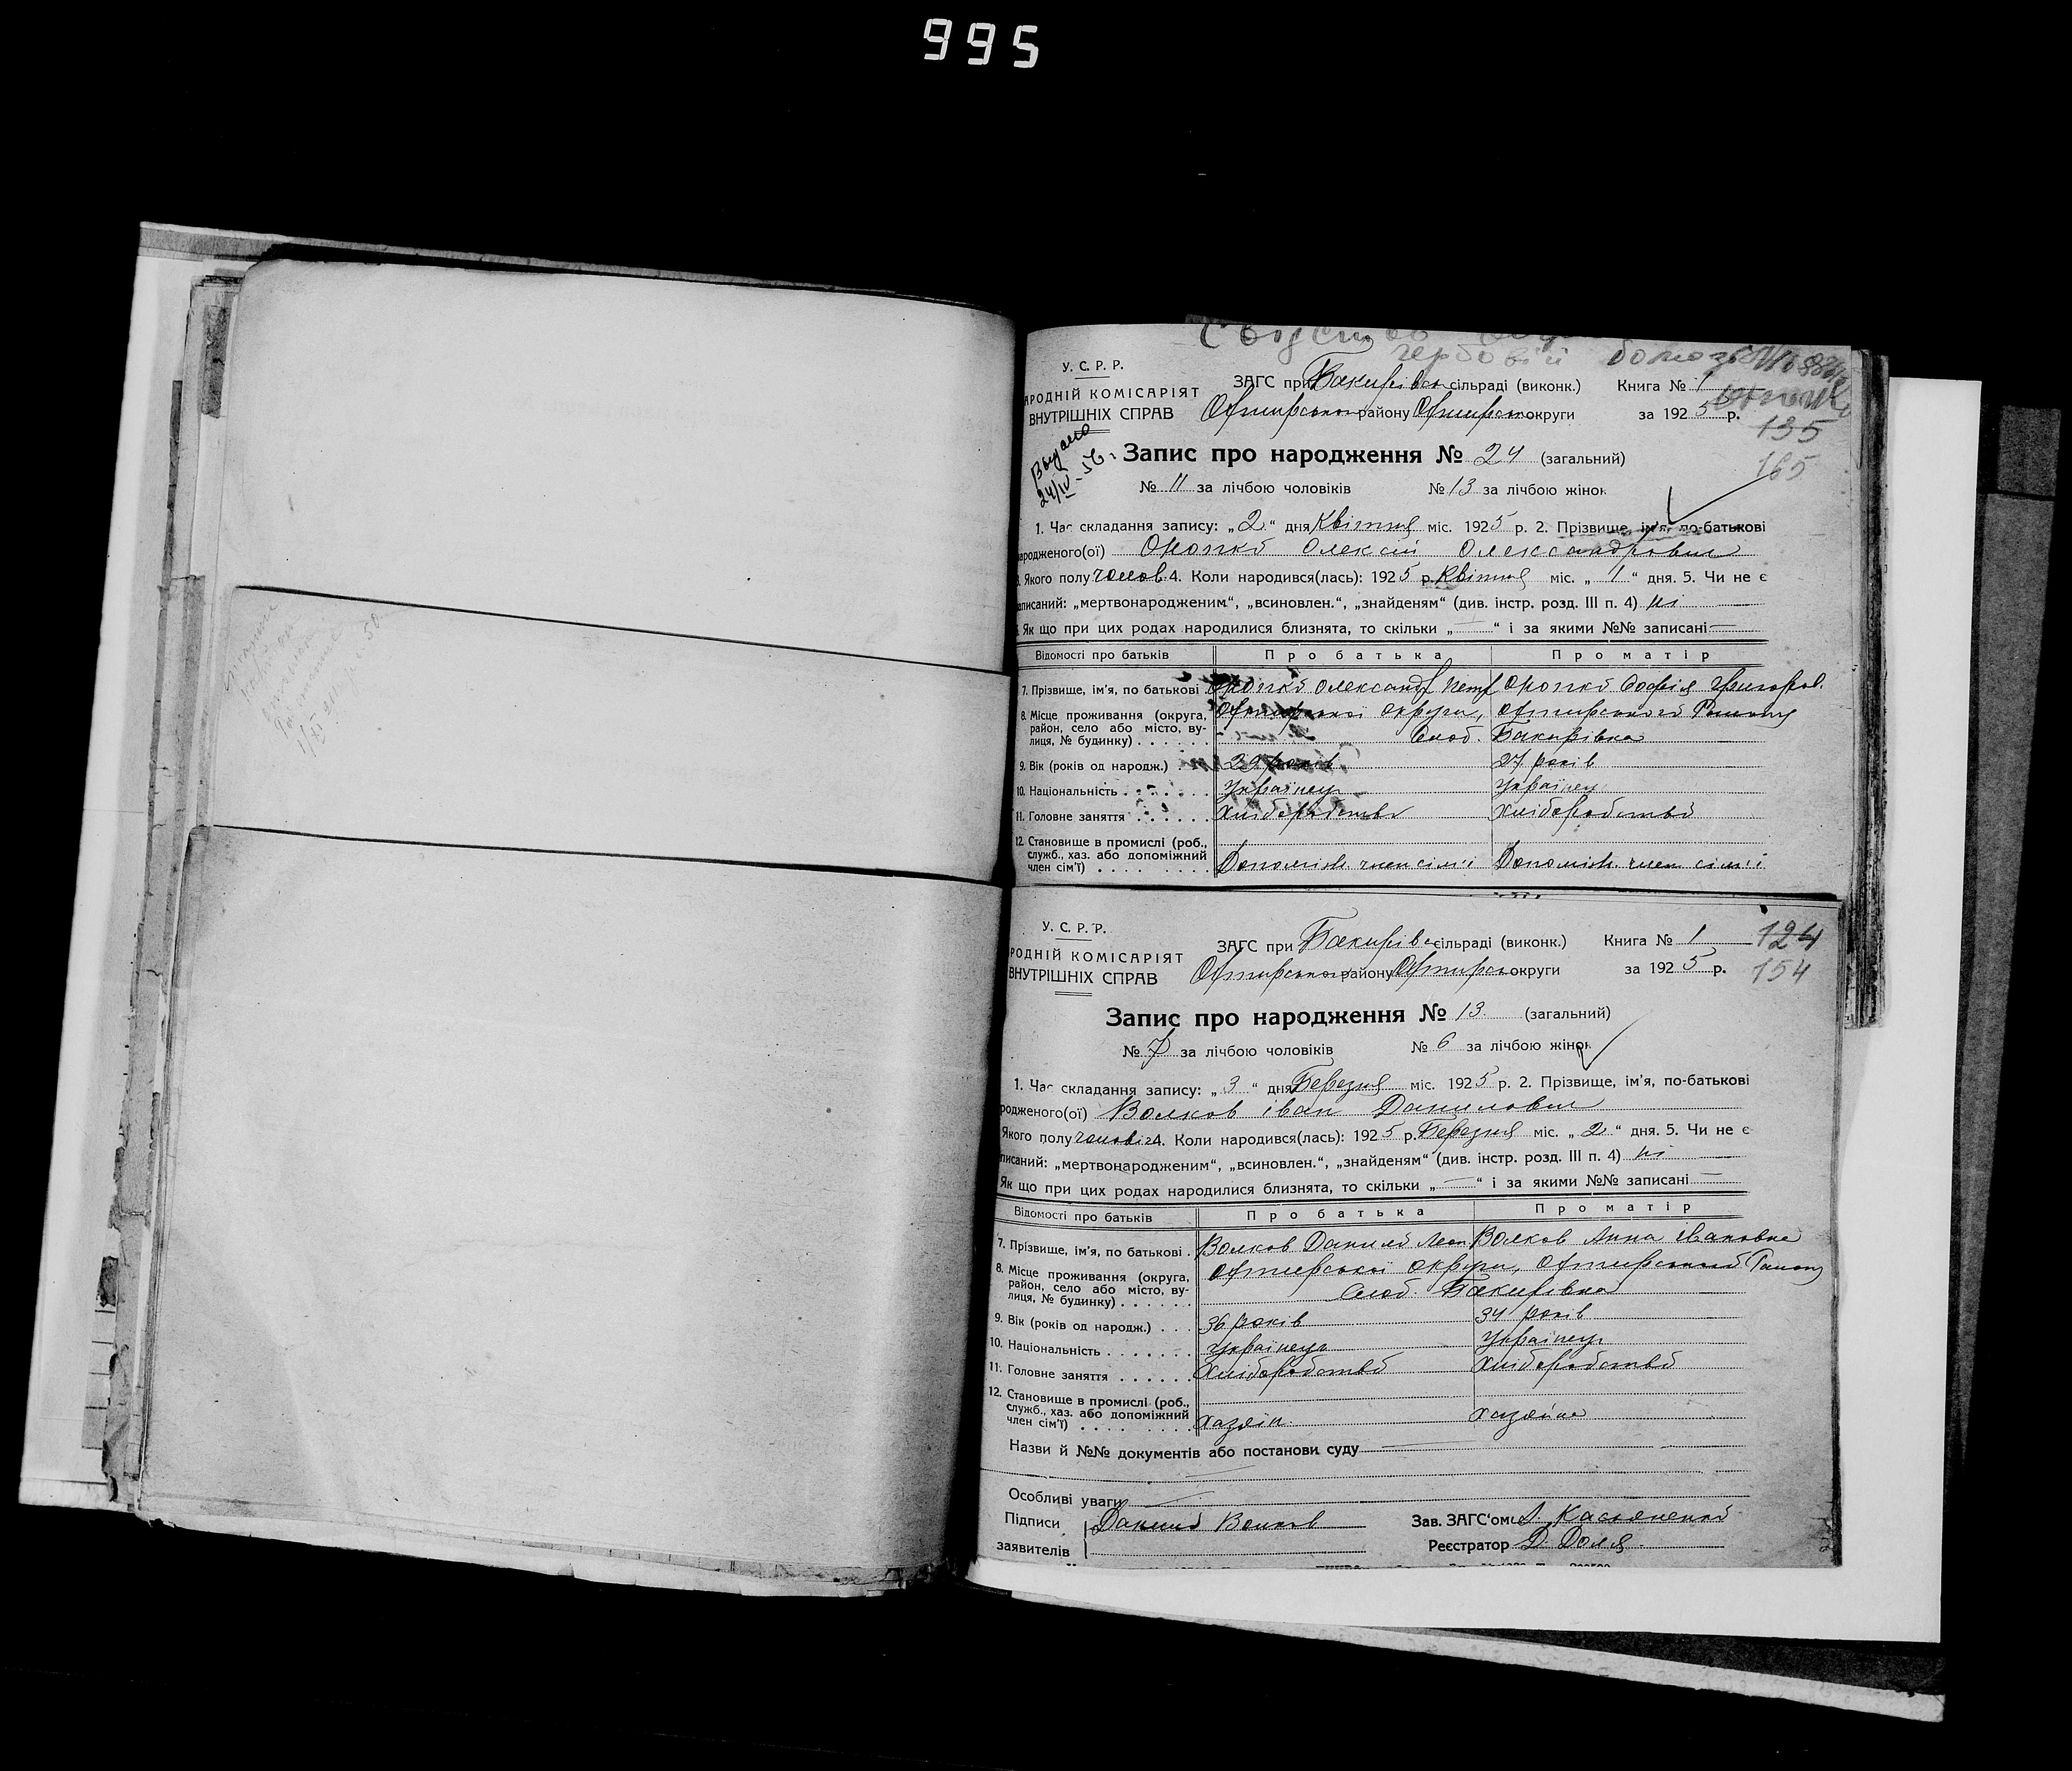 995
У. С. Р. Р.
РОДНІЙ КОМІСАРІЯТ
ВНУТРІШНІХ СПРАВ
ЗАГС при Бакирівськ сільраді (виконк.) Книга № 1
Охтирського району Охтирсько округи за 1925 р.
135
165
Выдано
24/IV-56.
Запис про народження № 24 (загальний)
№ 11 за лічбою чоловіків № 13 за лічбою жінок
1. Час складання запису: „2“ дня Квітня міс. 1925 р. 2. Прізвище, ім'я, по-батькові
ародженого(ої) Олексій Олександрович
Якого полу чолов. 4. Коли народився(лась): 1925 р. Квітня міс. „1“ дня. 5. Чи не є
аписаний: „мертвонародженим“, „всиновлен.“, „знайденям“ (див. інстр. розд. III п. 4) ні
Як що при цих родах народилися близнята, то скільки „—“ і за якими №№ записані —
Відомості про батьків Про батька Про матір
7. Прізвище, ім'я, по батькові Олександр Петр Софія Григоров.
8. Місце проживання (округа, район, село або місто, вулиця, № будинку) Охтирської округи, Охтирського Району
Слоб. Бакирівка
9. Вік (років од народж.) 29 років 27 років
10. Національність Українец Українец
11. Головне заняття Хліборобство Хліборобство
12. Становище в промислі (роб., служб., хаз. або допоміжний член сім'ї) Допоміж. член сім'ї Допоміж. член сім'ї
У. С. Р. Р.
РОДНІЙ КОМІСАРІЯТ
ВНУТРІШНІХ СПРАВ
ЗАГС при Бакирівс сільраді (виконк.) Книга № 1
124
Охтирського району Охтирсь округи за 1925 р.
154
Запис про народження № 13 (загальний)
№ 7 за лічбою чоловіків № 6 за лічбою жінок
1. Час складання запису: „3“ дня Березня міс. 1925 р. 2. Прізвище, ім'я, по-батькові
родженого(ої) Волков Іван Данилович
Якого полу чолові 4. Коли народився(лась): 1925 р. Березня міс. „2“ дня. 5. Чи не є
писаний: „мертвонародженим“, „всиновлен.“, „знайденям“ (див. інстр. розд. III п. 4) ні
Як що при цих родах народилися близнята, то скільки „—“ і за якими №№ записані —
Відомості про батьків Про батька Про матір
7. Прізвище, ім'я, по батькові Волков Данило Леон Волков Анна Івановна
8. Місце проживання (округа, район, село або місто, вулиця, № будинку) Охтирської округи, Охтирський Район
Слоб. Бакирівка
9. Вік (років од народж.) 36 років 34 років
10. Національність Українець Українец
11. Головне заняття Хліборобство Хліборобство
12. Становище в промислі (роб., служб., хаз. або допоміжний член сім'ї) хазяін хазяйка
Назви й №№ документів або постанови суду
Особливі уваги
Підписи заявителів Данило Волков
Зав. ЗАГС'ом А. Касьяненко
Реєстратор Д. Доля